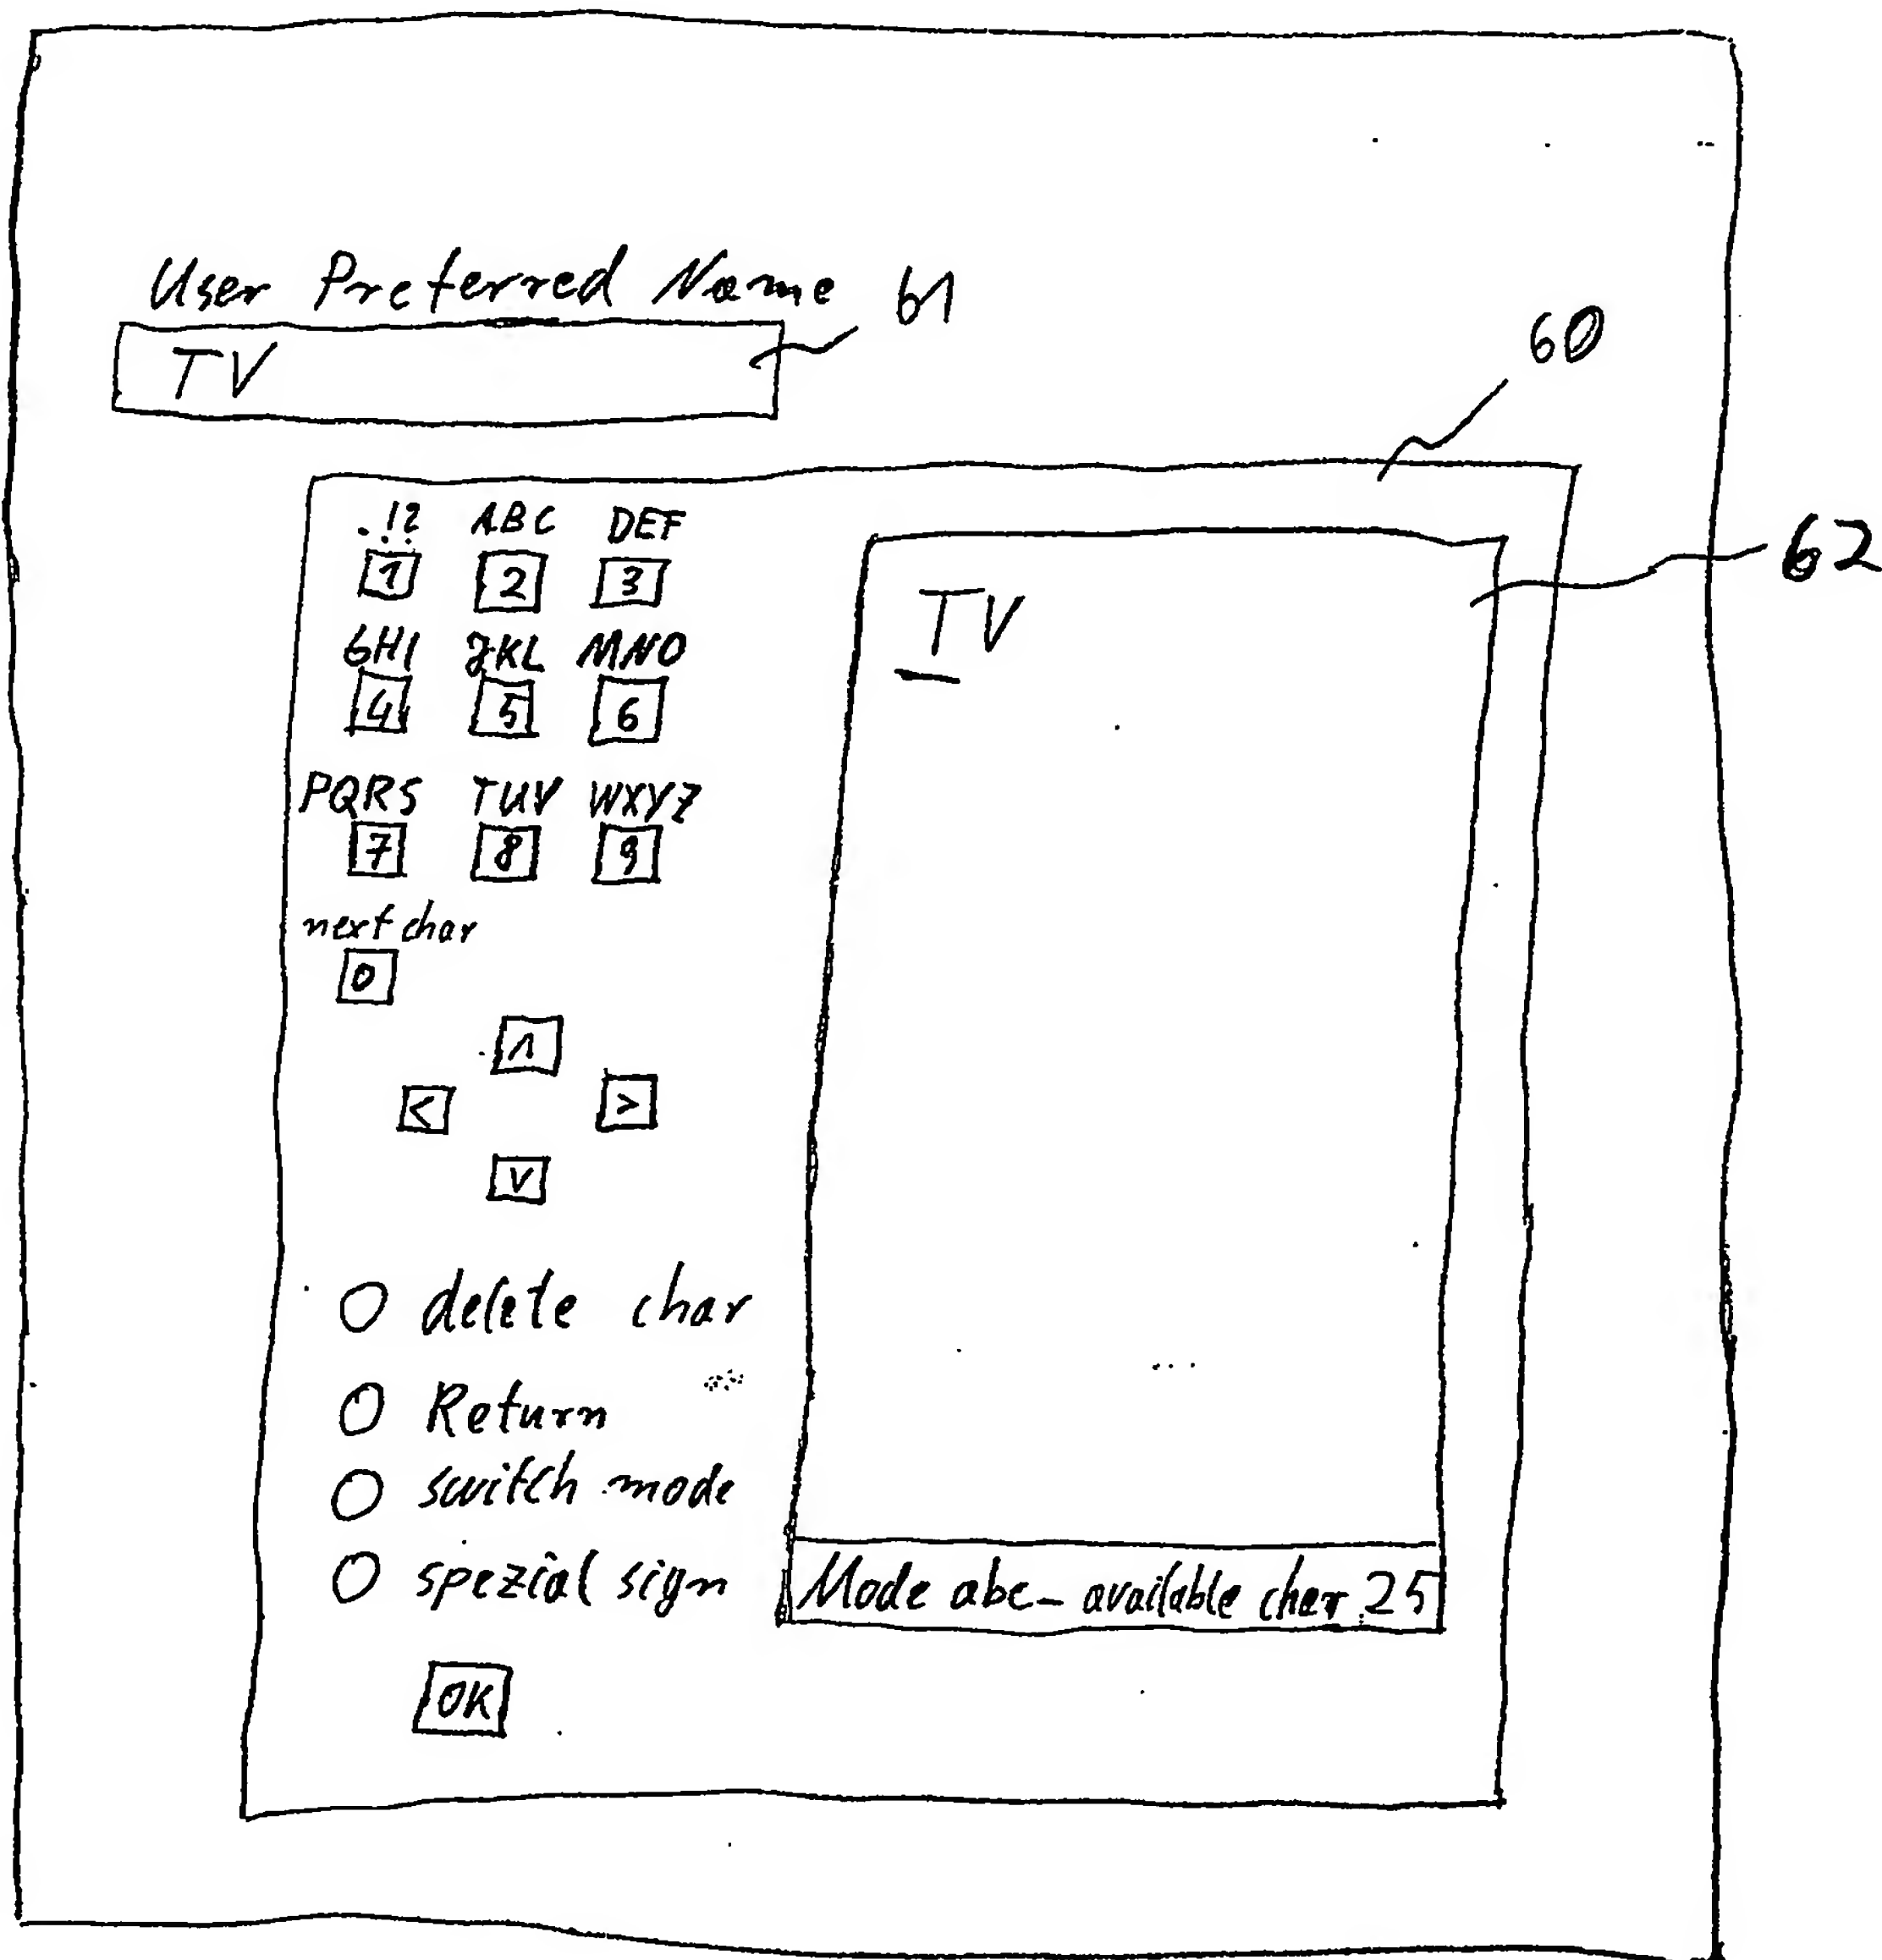 User Preferred Name 61
TV
60
.!? ABC DEF
1 2 3
62
TV
GHI JKL MNO
4 5 6
PQRS TUV WXYZ
7 8 9
next char
0
Λ
< >
V
delete char
Return
switch mode
spezial sign
Mode abc - available char. 25
OK